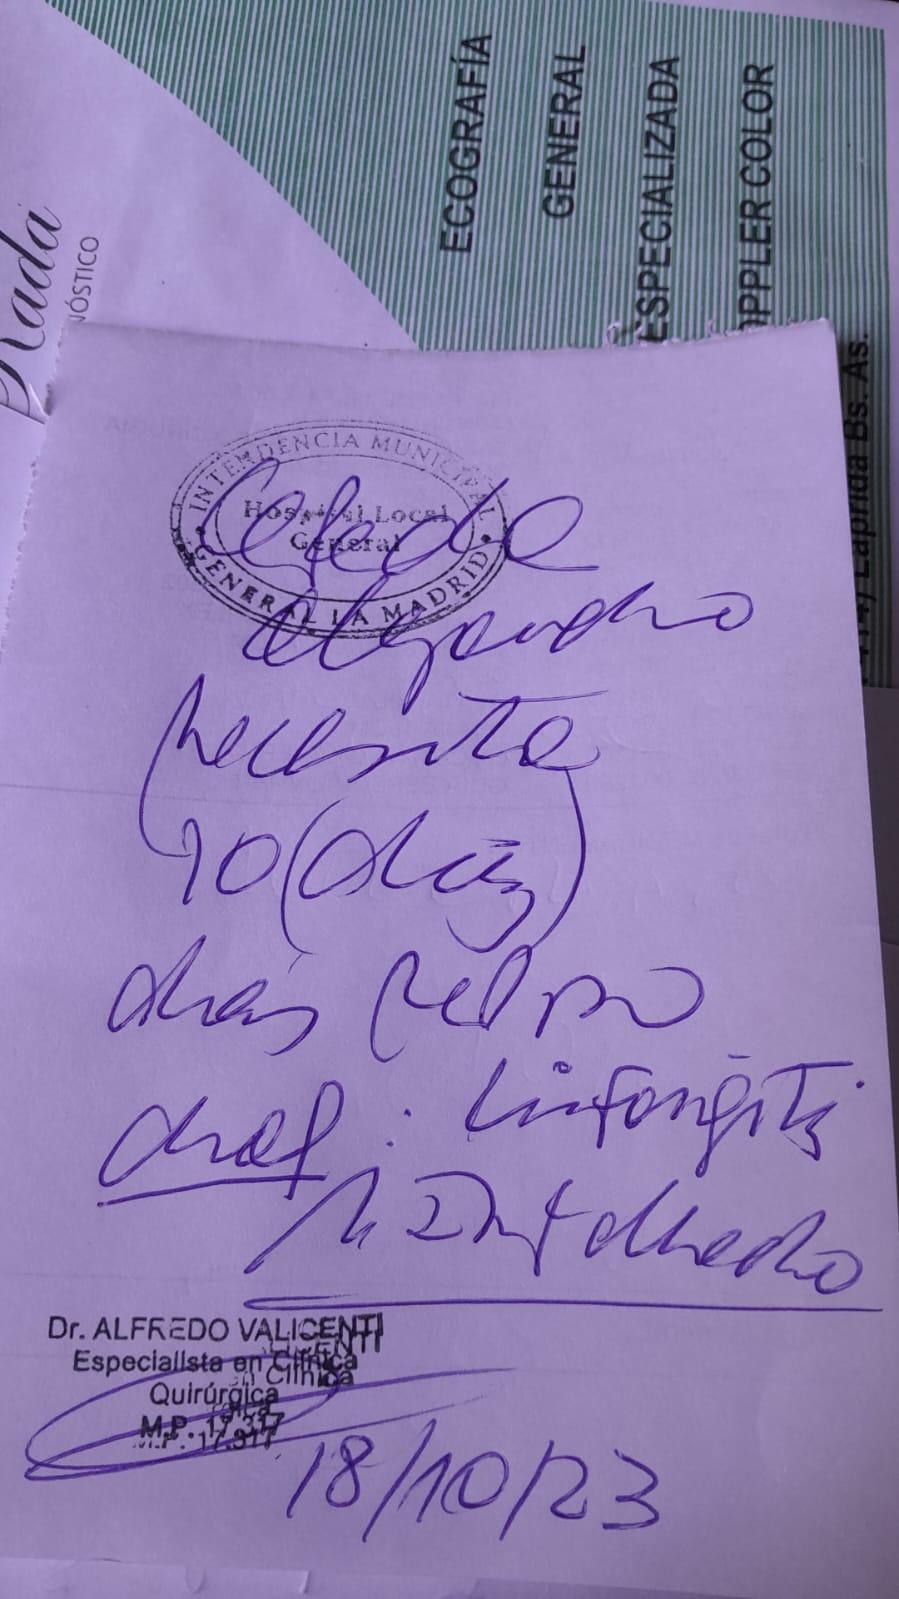 Rada
NÓSTICO
ECOGRAFÍA
GENERAL
ESPECIALIZADA
OPPLER COLOR
Laprida Bs. As.
INTENDENCIA MUNICIPAL
Hospital Local
General
GENERAL LA MADRID
Alejandro
necesita
10 (diez)
días reposo
diag: Linfangitis
M. Inf derecho
Dr. ALFREDO VALICENTI
Especialista en Clínica
Quirúrgica
M.P. 17.317
18/10/23